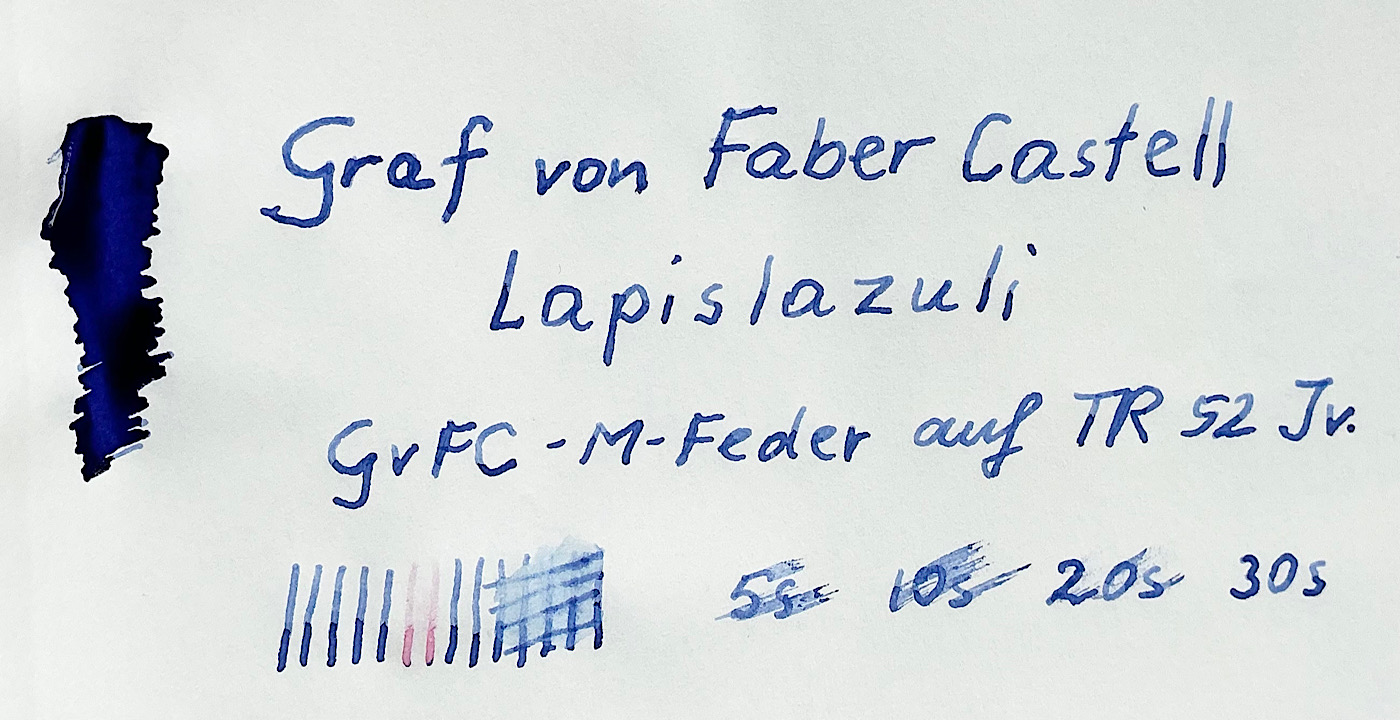 Graf von Faber Castell
Lapislazuli
GvFC-M-Feder auf TR 52 Jv.
5s 10s 20s 30s